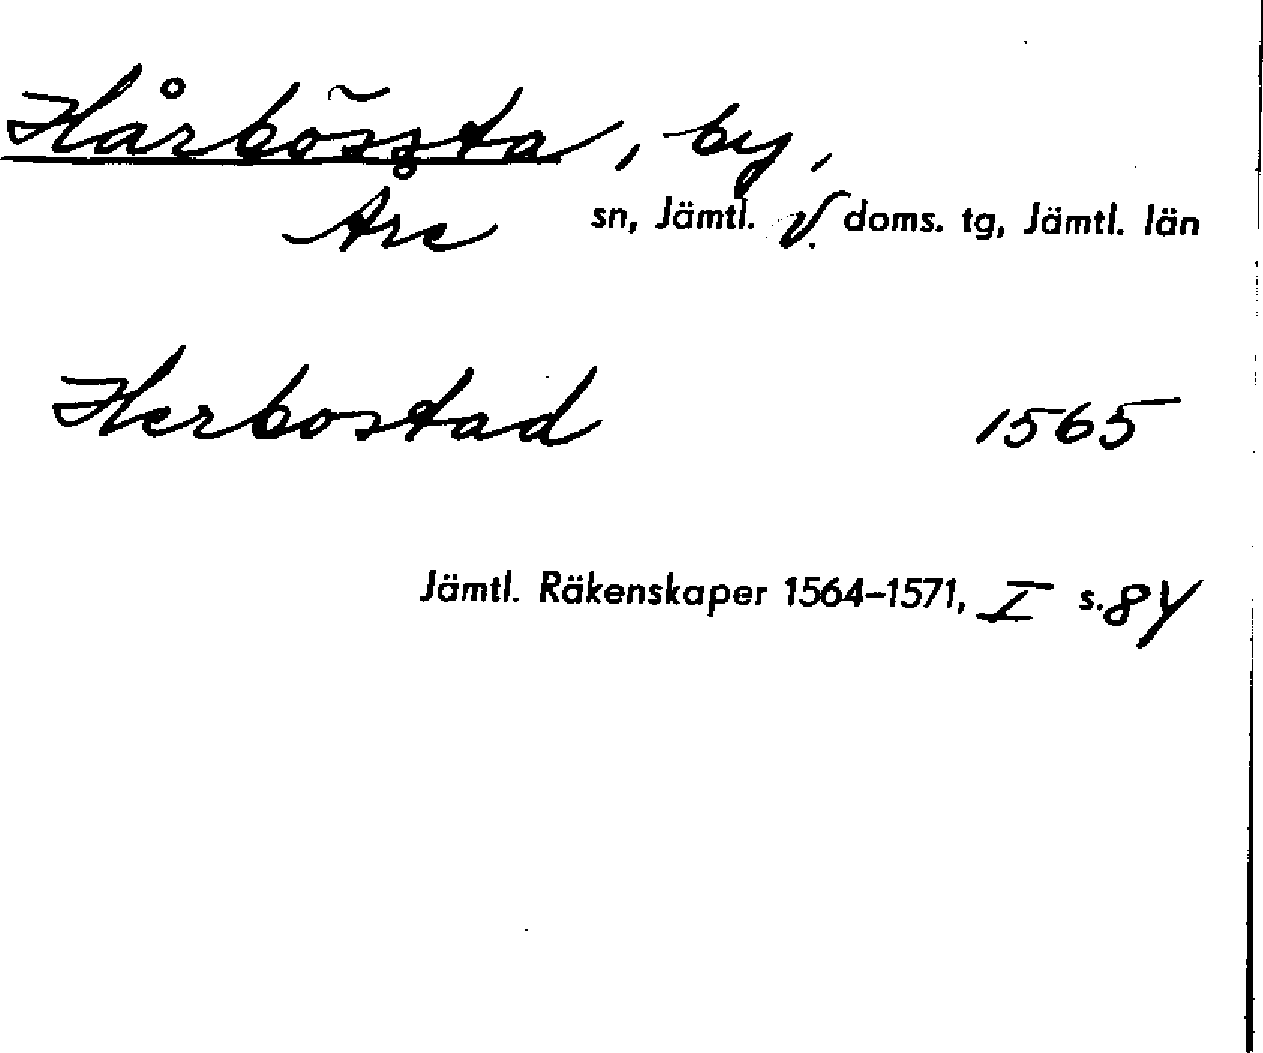 Hårbössta, by,
Åre sn, Jämtl. v. doms. tg, Jämtl. län
Herbostad 1565
Jämtl. Räkenskaper 1564–1571, I s. 84